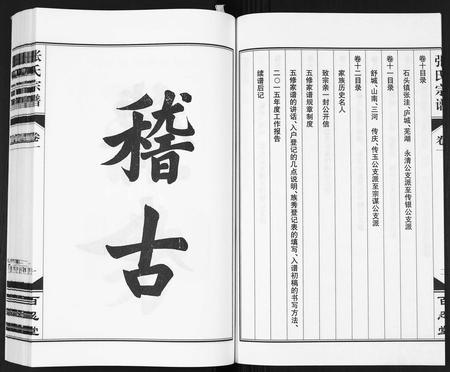 张氏宗谱
卷一
卷十目录
石头镇张洼、庐城、芜湖 永清公支派至传银公支派
卷十一目录
舒城、山南、三河 传庆、传玉公支派至宗谋公支派
卷十二目录
家族历史名人
致宗亲一封公开信
五修家谱规章制度
五修家谱的讲话、入户登记的几点说明、族秀登记表的填写、入谱初稿的书写方法、
二〇一五年度工作报告
续谱后记
百忍堂
稽古
张氏宗谱
卷一
百忍堂